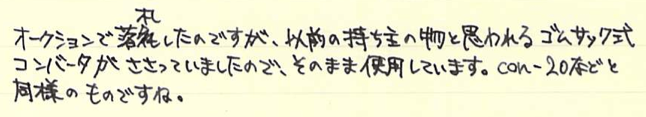 オークションで落札したのですが、以前の持ち主の物と思われるゴムサック式
コンバータがささっていましたので、そのまま使用しています。con-20本どと
同様のものですね。